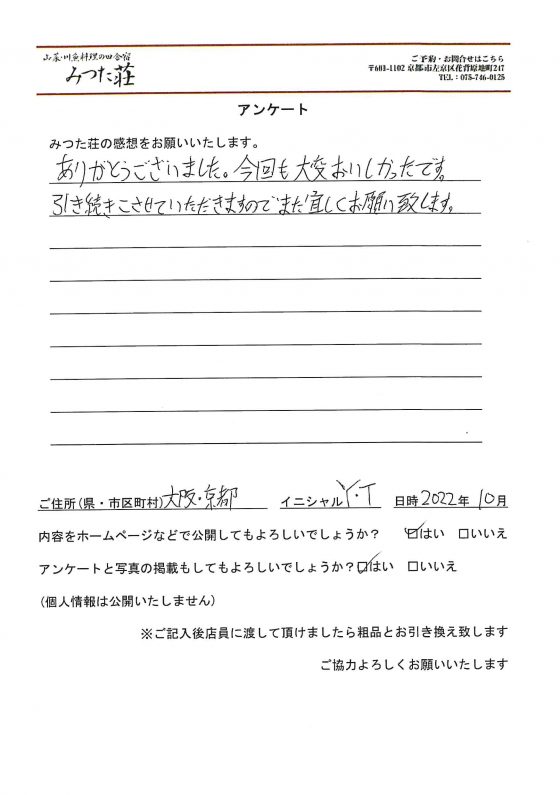 山菜・川魚料理の田舎宿
みつた荘
ご予約・お問合せはこちら
〒603-1102 京都市左京区花背原地町247
TEL：075-746-0125
アンケート
みつた荘の感想をお願いいたします。
ありがとうございました。今回も大変おいしかったです。
引き続きこさせていただきますのでまた宜しくお願い致します。
ご住所(県・市区町村)大阪・京都 イニシャル Y・T 日時 2022年 10月
内容をホームページなどで公開してもよろしいでしょうか？ ☑はい □いいえ
アンケートと写真の掲載もしてもよろしいでしょうか？☑はい □いいえ
(個人情報は公開いたしません)
※ご記入後店員に渡して頂けましたら粗品とお引き換え致します
ご協力よろしくお願いいたします